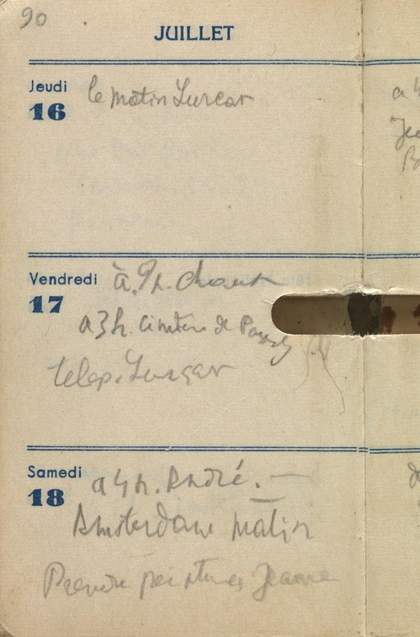 90
JUILLET
Jeudi
16
le matin Lurcat
a
Vendredi
17
à 9h.
a 3h. Cimetière de Passy
telep. Lurçat
Samedi
18
a 4h. André.
Amsterdam matin
Prendre peintures Jeanne